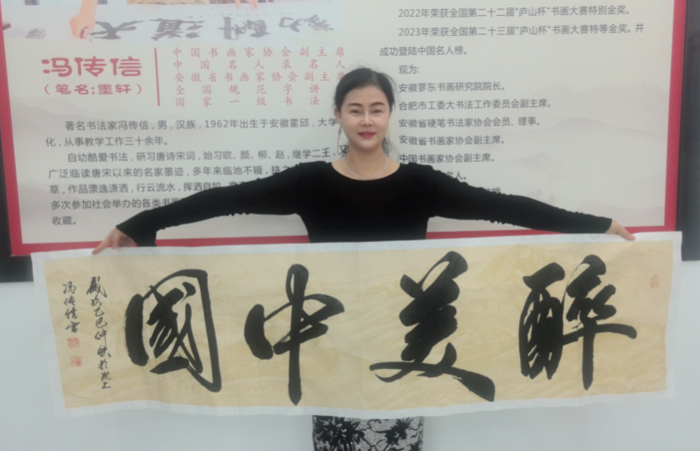 冯传信
（笔名:墨轩）
中国书画家协会副主席
中国名人录名人
安徽省书画家协会副主席
全国规范字讲
国家一级书法
著名书法家冯传信,男,汉族,1962年出生于安徽霍邱,大学
化,从事教学工作三十余年。
自幼酷爱书法,研习唐诗宋词,始习欧、颜、柳、赵,继学二王,
广泛临读唐宋以来的名家墨迹,多年来临池不辍,
草,作品漂逸潇洒,行云流水,挥洒自如
多次参加社会举办的各类书
收藏。
2022年荣获全国第二十二届"庐山杯"书画大赛特别金奖。
2023年荣获全国第二十三届"庐山杯"书画大赛特等金奖。并
成功登陆中国名人榜。
现为:
安徽萝东书画研究院院长。
合肥市工委大书法工作委员会副主席。
安徽省硬笔书法家协会会员、理事。
安徽省书画家协会副主席。
中国书画家协会副主席。
名人。
醉美中國
歲次乙巳仲秋於
冯传信書